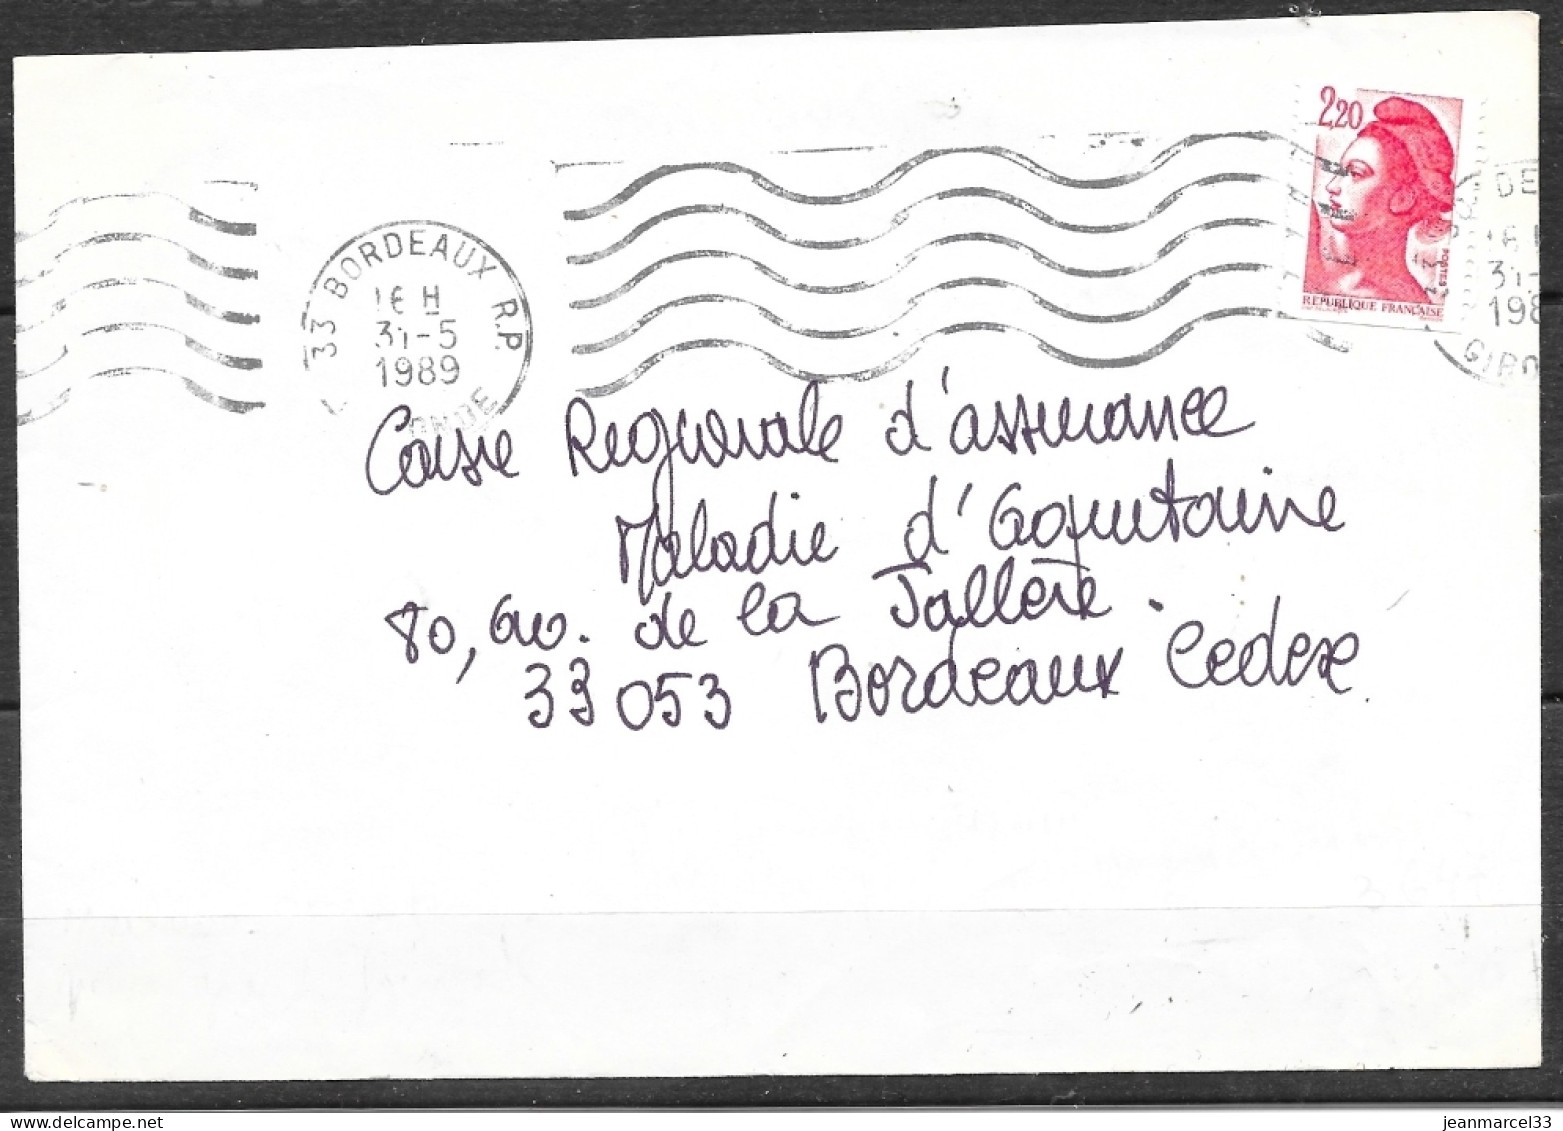 2,20
POSTES
REPUBLIQUE FRANÇAISE
33 BORDEAUX R.P.
16 H
31-5
1989
GIRONDE
Caisse Regionale d'assurance
Maladie d'Aquitaine
80, av. de la Jallère.
33053 Bordeaux Cedex
DE
16
31-
198
GIRO
jeanmarcel33